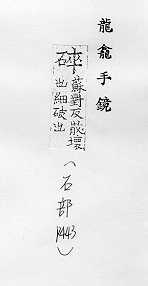 龍龕手鏡
蘇對反散壞
也細破也
(石部 P.443)